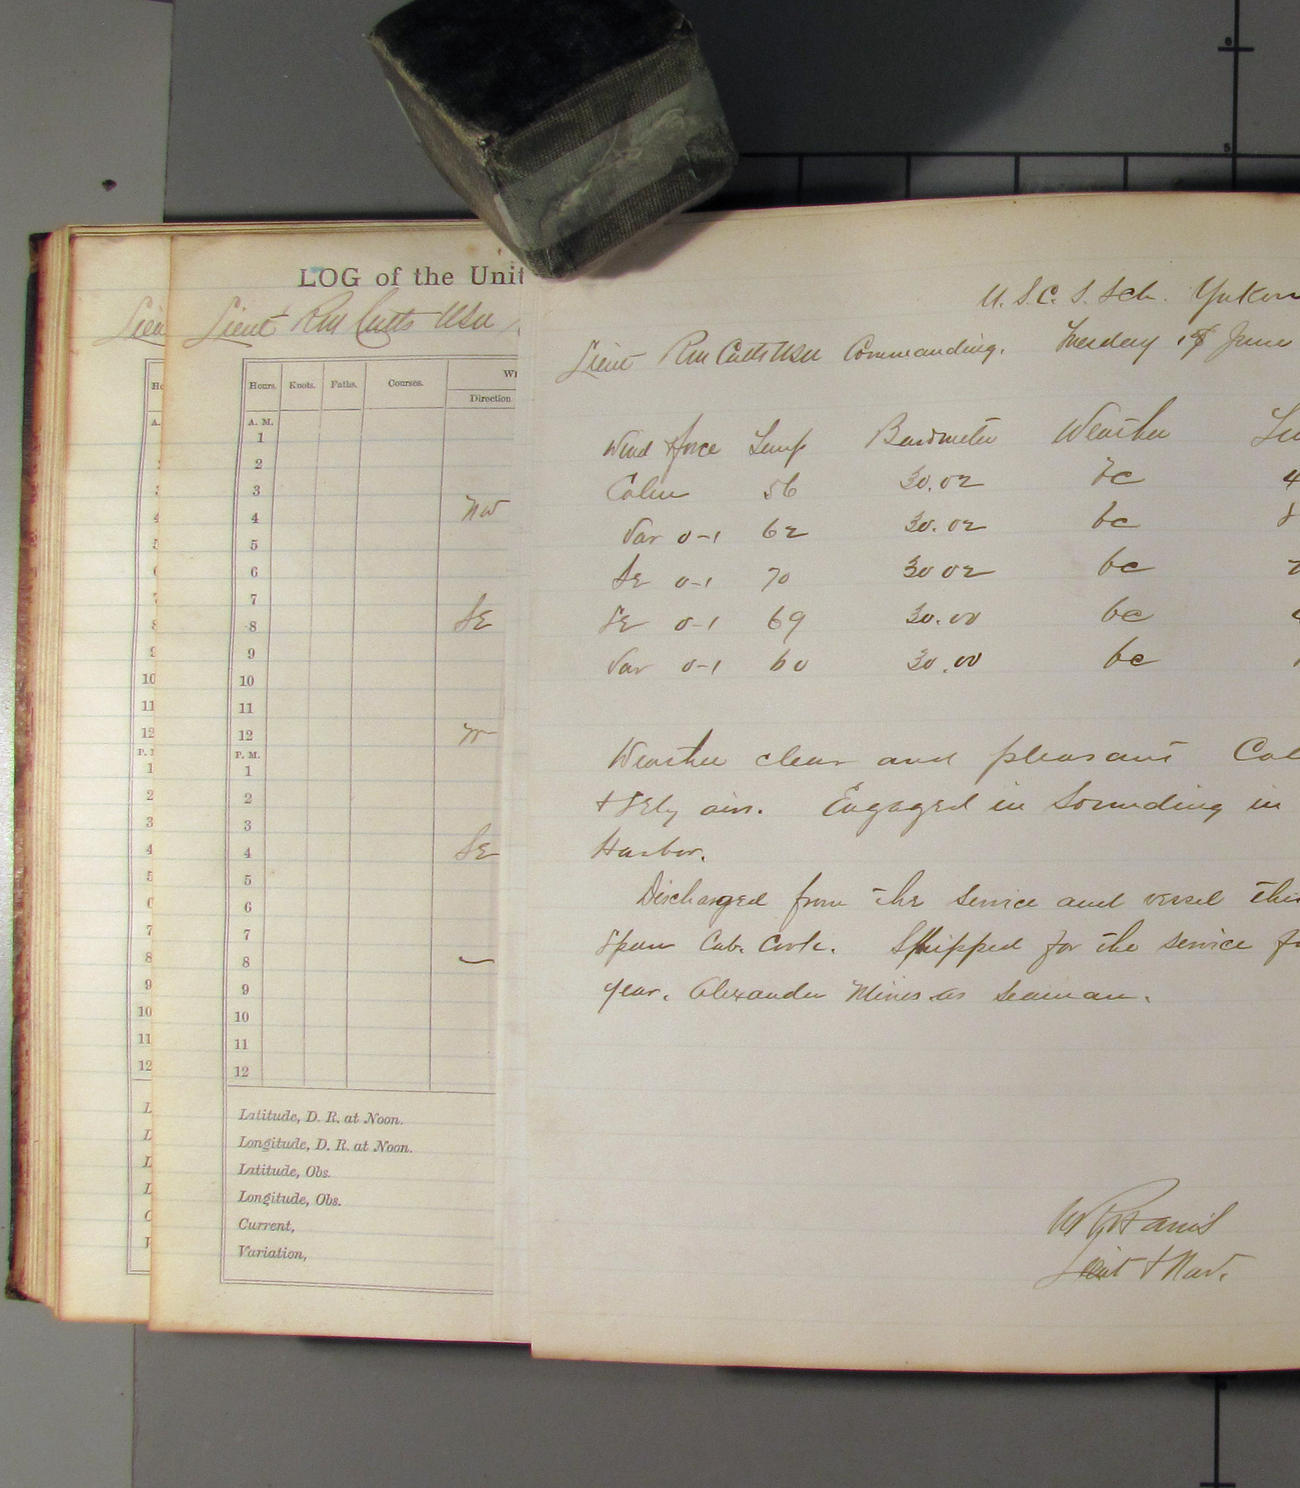 LOG of the Unit
Lieut RM Cutts USN
Hours. Knots. Faths. Courses.
Direction
A. M.
1
2
3
4 NW
5
6
7
8 SE
9
10
11
12
P. M.
1
2
3
4 SE
5
6
7
8
9
10
11
12
Latitude, D. R. at Noon.
Longitude, D. R. at Noon.
Latitude, Obs.
Longitude, Obs.
Current,
Variation,
U. S. C. S. Sch. Yukon
Lieut RM Cutts USN Commanding. Tuesday June
Wind & force Temp Barometer Weather
Calm 56 30.02 bc
Var 0-1 62 30.02 bc
SE 0-1 70 30 02 bc
SE 0-1 69 30.00 bc
Var 0-1 60 30.00 bc
Weather clear and pleasant Cal
+ SEly airs. Engaged in Sounding in
Harbor.
Discharged from the service and vessel this
Cab. Cook. Shipped for the service
year. Alexander Mines as seaman.
Lieut & Nav.